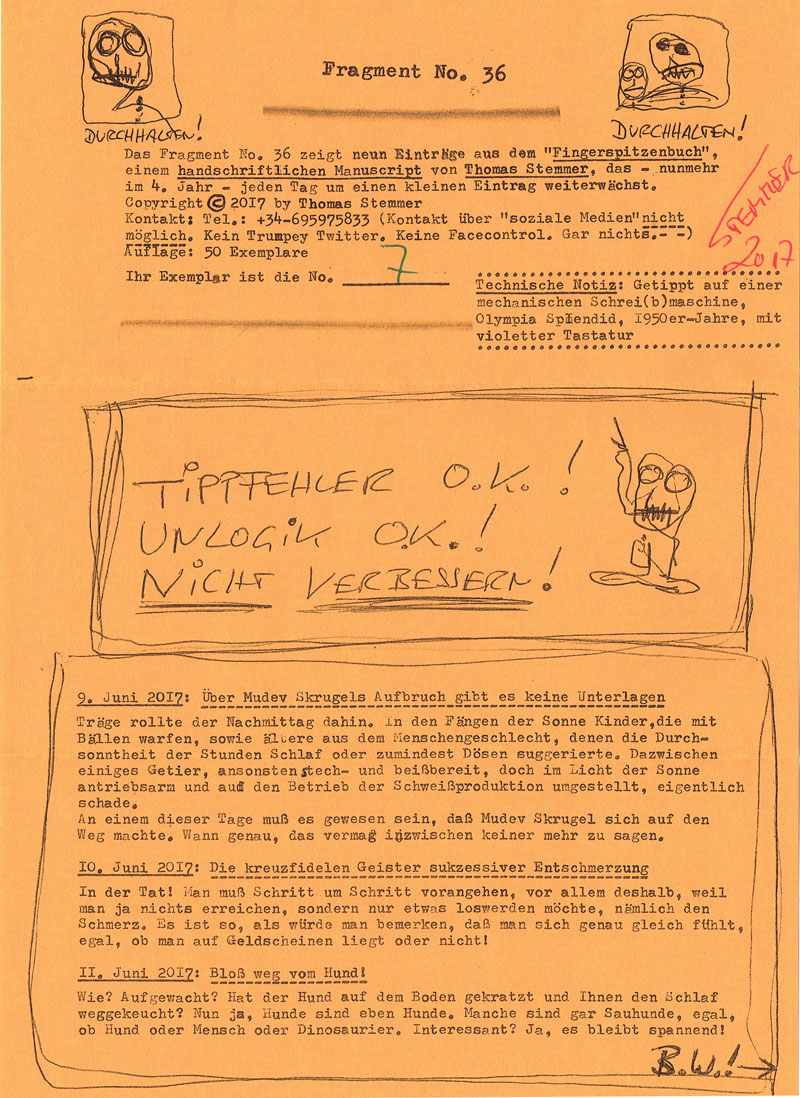 Fragment No. 36
DURCHHALTEN!
DURCHHALTEN!
Das Fragment No. 36 zeigt neun Einträge aus dem "Fingerspitzenbuch",
einem handschriftlichen Manuscript von Thomas Stemmer, das - nunmehr
im 4. Jahr - jeden Tag um einen kleinen Eintrag weiterwächst.
Copyright © 2017 by Thomas Stemmer
Kontakt: Tel.: +34-695975833 (Kontakt über "soziale Medien" nicht
möglich. Kein Trumpey Twitter. Keine Facecontrol. Gar nichts.- -)
Auflage: 50 Exemplare
Ihr Exemplar ist die No. 7
2017
Technische Notiz: Getippt auf einer
mechanischen Schrei(b)maschine,
Olympia Splendid, 1950er-Jahre, mit
violetter Tastatur
TIPPFEHLER O.K.!
UNLOGIK O.K.!
NICHT VERBESSERN!
9. Juni 2017: Über Mudev Skrugels Aufbruch gibt es keine Unterlagen
Träge rollte der Nachmittag dahin. In den Fängen der Sonne Kinder,die mit
Bällen warfen, sowie ältere aus dem Menschengeschlecht, denen die Durch-
sonntheit der Stunden Schlaf oder zumindest Dösen suggerierte. Dazwischen
einiges Getier, ansonsten stech- und beißbereit, doch im Licht der Sonne
antriebsarm und auf den Betrieb der Schweißproduktion umgestellt, eigentlich
schade.
An einem dieser Tage muß es gewesen sein, daß Mudev Skrugel sich auf den
Weg machte. Wann genau, das vermag inzwischen keiner mehr zu sagen.
10. Juni 2017: Die kreuzfidelen Geister sukzessiver Entschmerzung
In der Tat! Man muß Schritt um Schritt vorangehen, vor allem deshalb, weil
man ja nichts erreichen, sondern nur etwas loswerden möchte, nämlich den
Schmerz. Es ist so, als würde man bemerken, daß man sich genau gleich fühlt,
egal, ob man auf Geldscheinen liegt oder nicht!
11. Juni 2017: Bloß weg vom Hund!
Wie? Aufgewacht? Hat der Hund auf dem Boden gekratzt und Ihnen den Schlaf
weggekeucht? Nun ja, Hunde sind eben Hunde. Manche sind gar Sauhunde, egal,
ob Hund oder Mensch oder Dinosaurier. Interessant? Ja, es bleibt spannend!
B.W.!